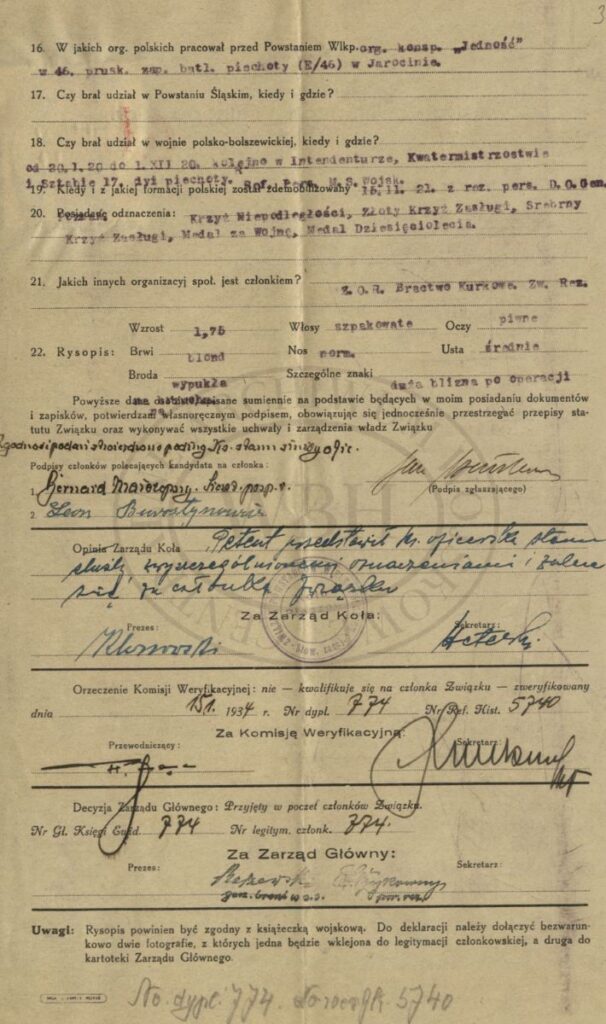 3
16. W jakich org. polskich pracował przed Powstaniem Wlkp. org. konsp. „Jedność"
w 46. prusk. zap. batl. piechoty (E/46) w Jarocinie.
17. Czy brał udział w Powstaniu Śląskim, kiedy i gdzie?
18. Czy brał udział w wojnie polsko-bolszewickiej, kiedy i gdzie?
od 20.1.20 do 1.XII 20. kolejno w Intendenturze, Kwatermistrzostwie
i Sztabie 17. dyi piechoty. Ref. Pers. M.S. Wojsk.
19. Kiedy i z jakiej formacji polskiej został zdemobilizowany 15.11. 21. z rez. pers. D.O.Gen.
20. Posiadane odznaczenia: Krzyż Niepodległości, Złoty Krzyż Zasługi, Srebrny
Krzyż Zasługi, Medal za Wojnę, Medal Dziesięciolecia.
21. Jakich innych organizacyj społ. jest członkiem? Z.O.R. Bractwo Kurkowe. Zw. Rez.
Wzrost 1,75 Włosy szpakowate Oczy piwne
22. Rysopis: Brwi blond Nos norm. Usta średnie
Broda wypukła Szczególne znaki duża blizna po operacji
Powyższe dane wpisane sumiennie na podstawie będących w moim posiadaniu dokumentów
i zapisków, potwierdzam własnoręcznym podpisem, obowiązując się jednocześnie przestrzegać przepisy sta-
tutu Związku oraz wykonywać wszystkie uchwały i zarządzenia władz Związku
Zgodność podań stwierdzono podług Ks. stanu służby ofic.
Podpisy członków polecających kandydata na członka:
1. Bernard
(Podpis zgłaszającego)
2. Leon
Opinia Zarządu Koła Petent przedstawił ks. oficerską stanu
służby z wyszczególnionemi odznaczeniami i zaleca
się na członka Związku
Za Zarząd Koła:
Prezes: Sekretarz:
Orzeczenie Komisji Weryfikacyjnej: nie — kwalifikuje się na członka Związku — zweryfikowany
dnia 15/1. 1934 r. Nr dypl. 774 Nr Ref. Hist. 5740
Za Komisję Weryfikacyjną:
Przewodniczący: Sekretarz:
Decyzja Zarządu Głównego: Przyjęty w poczet członków Związku.
Nr Gł. Księgi Ewid. 774 Nr legitym. członk. 774.
Za Zarząd Główny:
Prezes: Sekretarz:
gen. broni w s. s. por. rez.
Uwagi: Rysopis powinien być zgodny z książeczką wojskową. Do deklaracji należy dołączyć bezwarun-
kowo dwie fotografie, z których jedna będzie wklejona do legitymacji członkowskiej, a druga do
kartoteki Zarządu Głównego.
No. dypl. 774. 5740